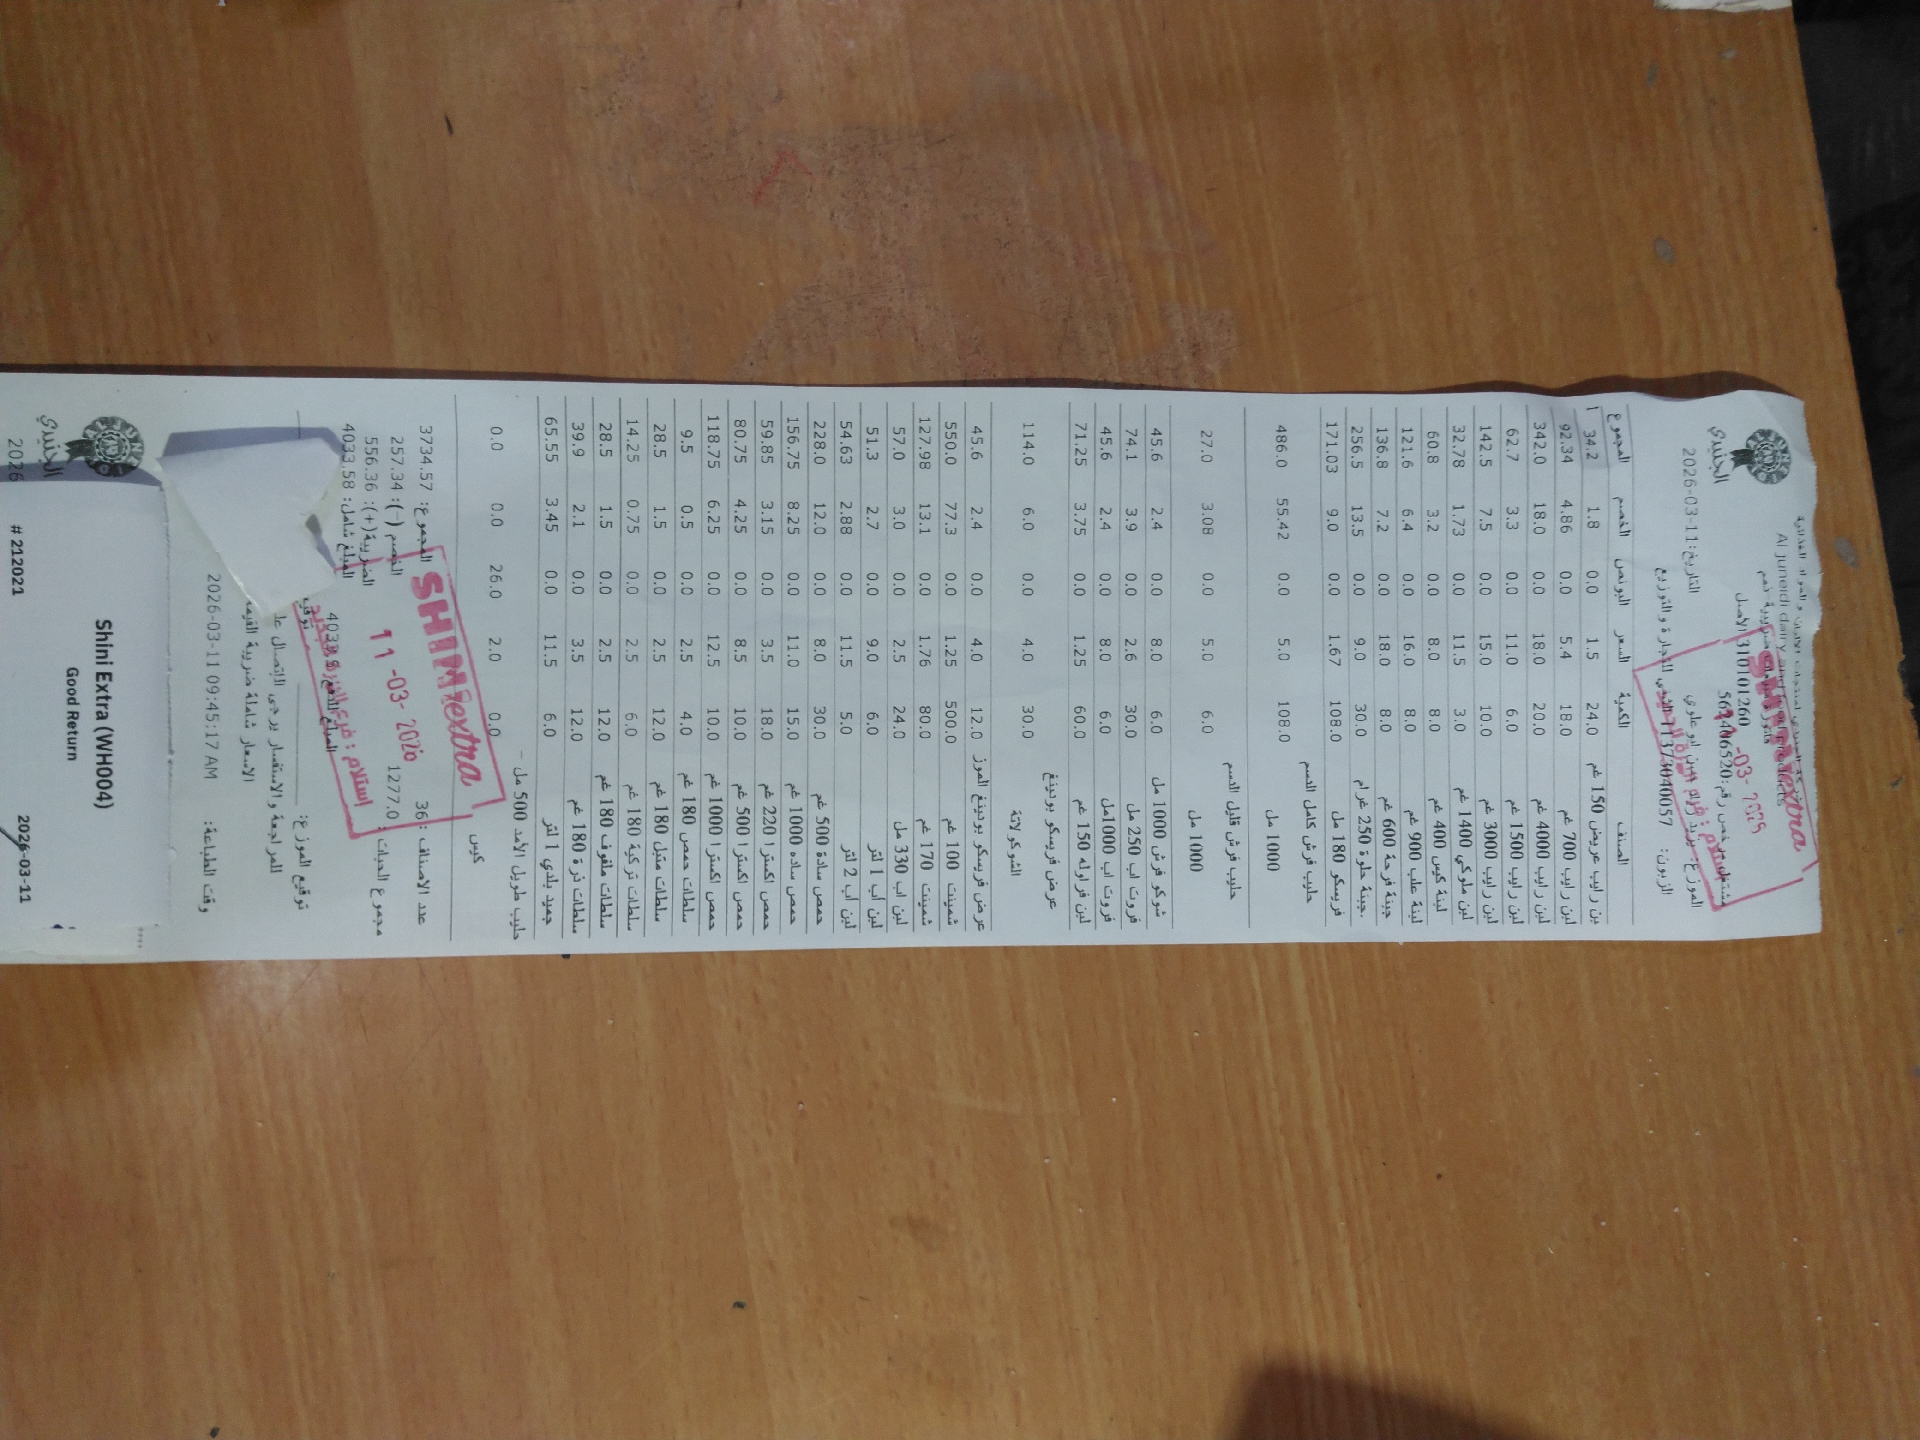 الجنيدي
Al juneidi dairy
التاريخ: 2026-03-11
310101260 الأصل
الزبون:
المجموع الخصم البونص السعر الكمية الصنف
34.2 1.8 0.0 1.5 24.0 لبن رايب عريض 150 غم
92.34 4.86 0.0 5.4 18.0 لبن رايب 700 غم
342.0 18.0 0.0 18.0 20.0 لبن رايب 4000 غم
62.7 3.3 0.0 11.0 6.0 لبن رايب 1500 غم
142.5 7.5 0.0 15.0 10.0 لبن رايب 3000 غم
32.78 1.73 0.0 11.5 3.0 لبن ملوكي 1400 غم
60.8 3.2 0.0 8.0 8.0 لبنة كيس 400 غم
121.6 6.4 0.0 16.0 8.0 لبنة علب 900 غم
136.8 7.2 0.0 18.0 8.0 جبنة فرحة 600 غم
256.5 13.5 0.0 9.0 30.0 جبنة حلوة 250 غرام
171.03 9.0 0.0 1.67 108.0 فريسكو 180 مل
حليب فرش كامل الدسم
486.0 55.42 0.0 5.0 108.0 1000 مل
حليب فرش قليل الدسم
27.0 3.08 0.0 5.0 6.0 1000 مل
45.6 2.4 0.0 8.0 6.0 شوكو فرش 1000 مل
74.1 3.9 0.0 2.6 30.0 فروت اب 250 مل
45.6 2.4 0.0 8.0 6.0 فروت اب 1000مل
71.25 3.75 0.0 1.25 60.0 لبن فراوله 150 غم
عرض فريسكو بودينغ
114.0 6.0 0.0 4.0 30.0 الشوكولاتة
45.6 2.4 0.0 4.0 12.0 عرض فريسكو بودينغ الموز
550.0 77.3 0.0 1.25 500.0 شمينت 100 غم
127.98 13.1 0.0 1.76 80.0 شمينت 170 غم
57.0 3.0 0.0 2.5 24.0 لبن اب 330 مل
51.3 2.7 0.0 9.0 6.0 لبن أب 1 لتر
54.63 2.88 0.0 11.5 5.0 لبن أب 2 لتر
228.0 12.0 0.0 8.0 30.0 حمص سادة 500 غم
156.75 8.25 0.0 11.0 15.0 حمص ساده 1000 غم
59.85 3.15 0.0 3.5 18.0 حمص اكسترا 220 غم
80.75 4.25 0.0 8.5 10.0 حمص اكسترا 500 غم
118.75 6.25 0.0 12.5 10.0 حمص اكسترا 1000 غم
9.5 0.5 0.0 2.5 4.0 سلطات حمص 180 غم
28.5 1.5 0.0 2.5 12.0 سلطات متبل 180 غم
14.25 0.75 0.0 2.5 6.0 سلطات تركية 180 غم
28.5 1.5 0.0 2.5 12.0 سلطات ملفوف 180 غم
39.9 2.1 0.0 3.5 12.0 سلطات ذرة 180 غم
65.55 3.45 0.0 11.5 6.0 جميد بلدي 1 لتر
حليب طويل الأمد 500 مل -
0.0 0.0 26.0 2.0 0.0 كيس
المجموع: 3734.57 عدد الاصناف: 36
الخصم (-): 257.34 مجموع الحبات: 1277.0
الضريبة(+): 556.36
المبلغ شامل: 4033.58
SHINI extra
11 -03- 2026
توقيع الموزع:
للمراجعة والاستفسار يرجى الاتصال
الاسعار شاملة ضريبة القيمة
وقت الطباعة: 2026-03-11 09:45:17 AM
الجنيدي
2026
Shini Extra (WH004)
Good Return
# 212021 2026-03-11